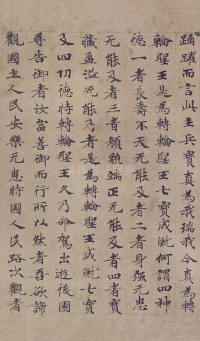 踊躍而言此主兵寶真為我瑞我今真為轉
輪聖王是為轉輪聖王七寶成就何謂四神
德一者長壽不夭无能及者二者身強无患
无能及者三者顏貌端正无能及者四者寶
藏盈溢无能及者是為轉輪聖王成就七寶
及四功德時轉輪聖王久乃命駕出遊後園
尋告御者汝當善御而行所以然者吾欲諦
觀國土人民安樂无患時國人民路次觀者